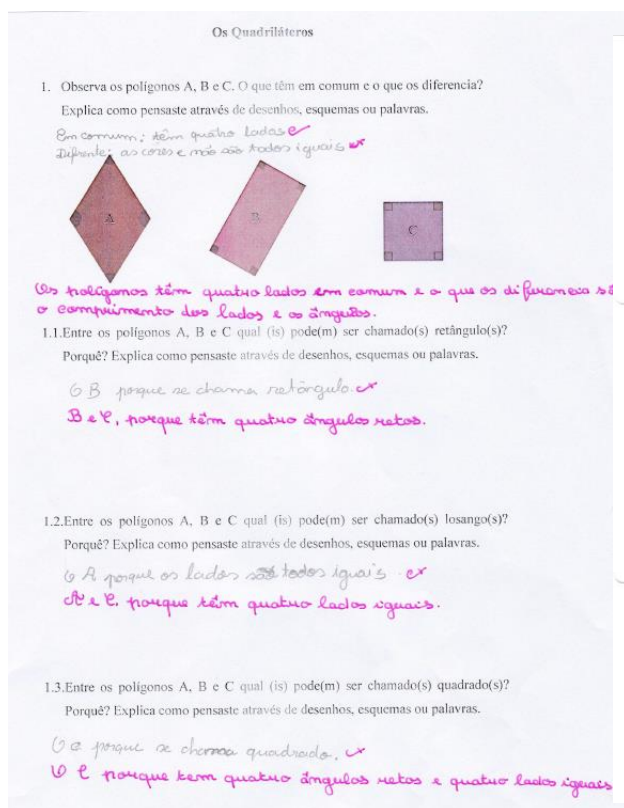 Os Quadriláteros
1. Observa os polígonos A, B e C. O que têm em comum e o que os diferencia?
Explica como pensaste através de desenhos, esquemas ou palavras.
Em comum: têm quatro lados
Difrente: as cores e não são todos iguais
A
B
C
Os polígonos têm quatro lados em comum e o que os diferencia sã
o comprimento dos lados e os ângulos.
1.1.Entre os polígonos A, B e C qual (is) pode(m) ser chamado(s) retângulo(s)?
Porquê? Explica como pensaste através de desenhos, esquemas ou palavras.
O B porque se chama retângulo.
B e C, porque têm quatro ângulos retos.
1.2.Entre os polígonos A, B e C qual (is) pode(m) ser chamado(s) losango(s)?
Porquê? Explica como pensaste através de desenhos, esquemas ou palavras.
O A porque os lados são todos iguais.
A e C, porque têm quatro lados iguais.
1.3.Entre os polígonos A, B e C qual (is) pode(m) ser chamado(s) quadrado(s)?
Porquê? Explica como pensaste através de desenhos, esquemas ou palavras.
O C porque se chama quadrado.
O C porque tem quatro ângulos retos e quatro lados iguais